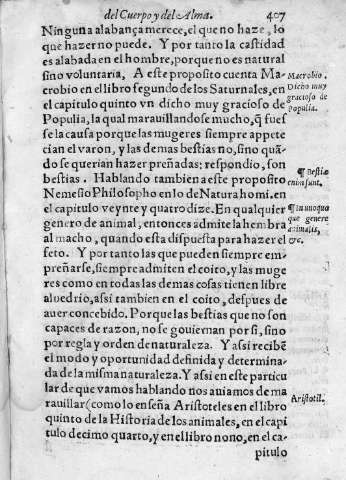 del Cuerpo y del Alma. 407
Ninguna alabança merece, el que no haze, lo
que hazer no puede. Y por tanto la castidad
es alabada en el hombre, porque no es natural
sino voluntaria, A este proposito cuenta Ma-
crobio en el libro segundo de los Saturnales, en
el capitulo quinto vn dicho muy gracioso de
Populia, la qual marauillandose mucho, q̃ fues
se la causa porque las mugeres siempre appete
cian el varon, y las demas bestias no, sino quã-
do se querian hazer preñadas: respondio, son
bestias. Hablando tambien a este proposito
Nemesio Philosopho en lo de Natura homi. en
el capitulo veynte y quatro dize. En qualquier
genero de animal, entonces admite la hembra
al macho, quando esta dispuesta para hazer el
feto. Y por tanto las que pueden siempre em-
preñarse, siempre admiten el coito, y las muge
res como en todas las demas cosas tienen libre
aluedrio, assi tambien en el coito, despues de
auer concebido. Porque las bestias que no son
capaces de razon, no se gouiernan por si, sino
por regla y orden de naturaleza. Y assi recibẽ
el modo y oportunidad definida y determina-
da de la misma naturaleza. Y assi en este particu
lar de que vamos hablando nos auiamos de ma
rauillar (como lo enseña Aristoteles en el libro
quinto de la Historia de los animales, en el capi
tulo decimo quarto, y en el libro nono, en el ca-
pitulo
Macrobio.
Dicho muy
gracioso de
Populia.
¶ Bestiæ
enim sunt.
¶ In unoquo
que genere
animalis,
&c.
Aristotil.